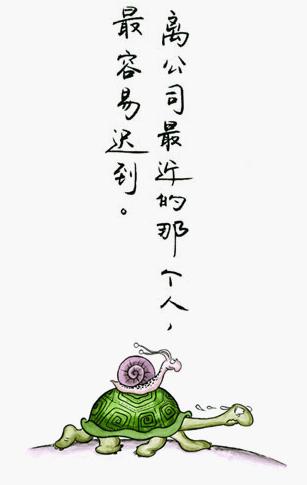 离公司最近的那个人，
最容易迟到。